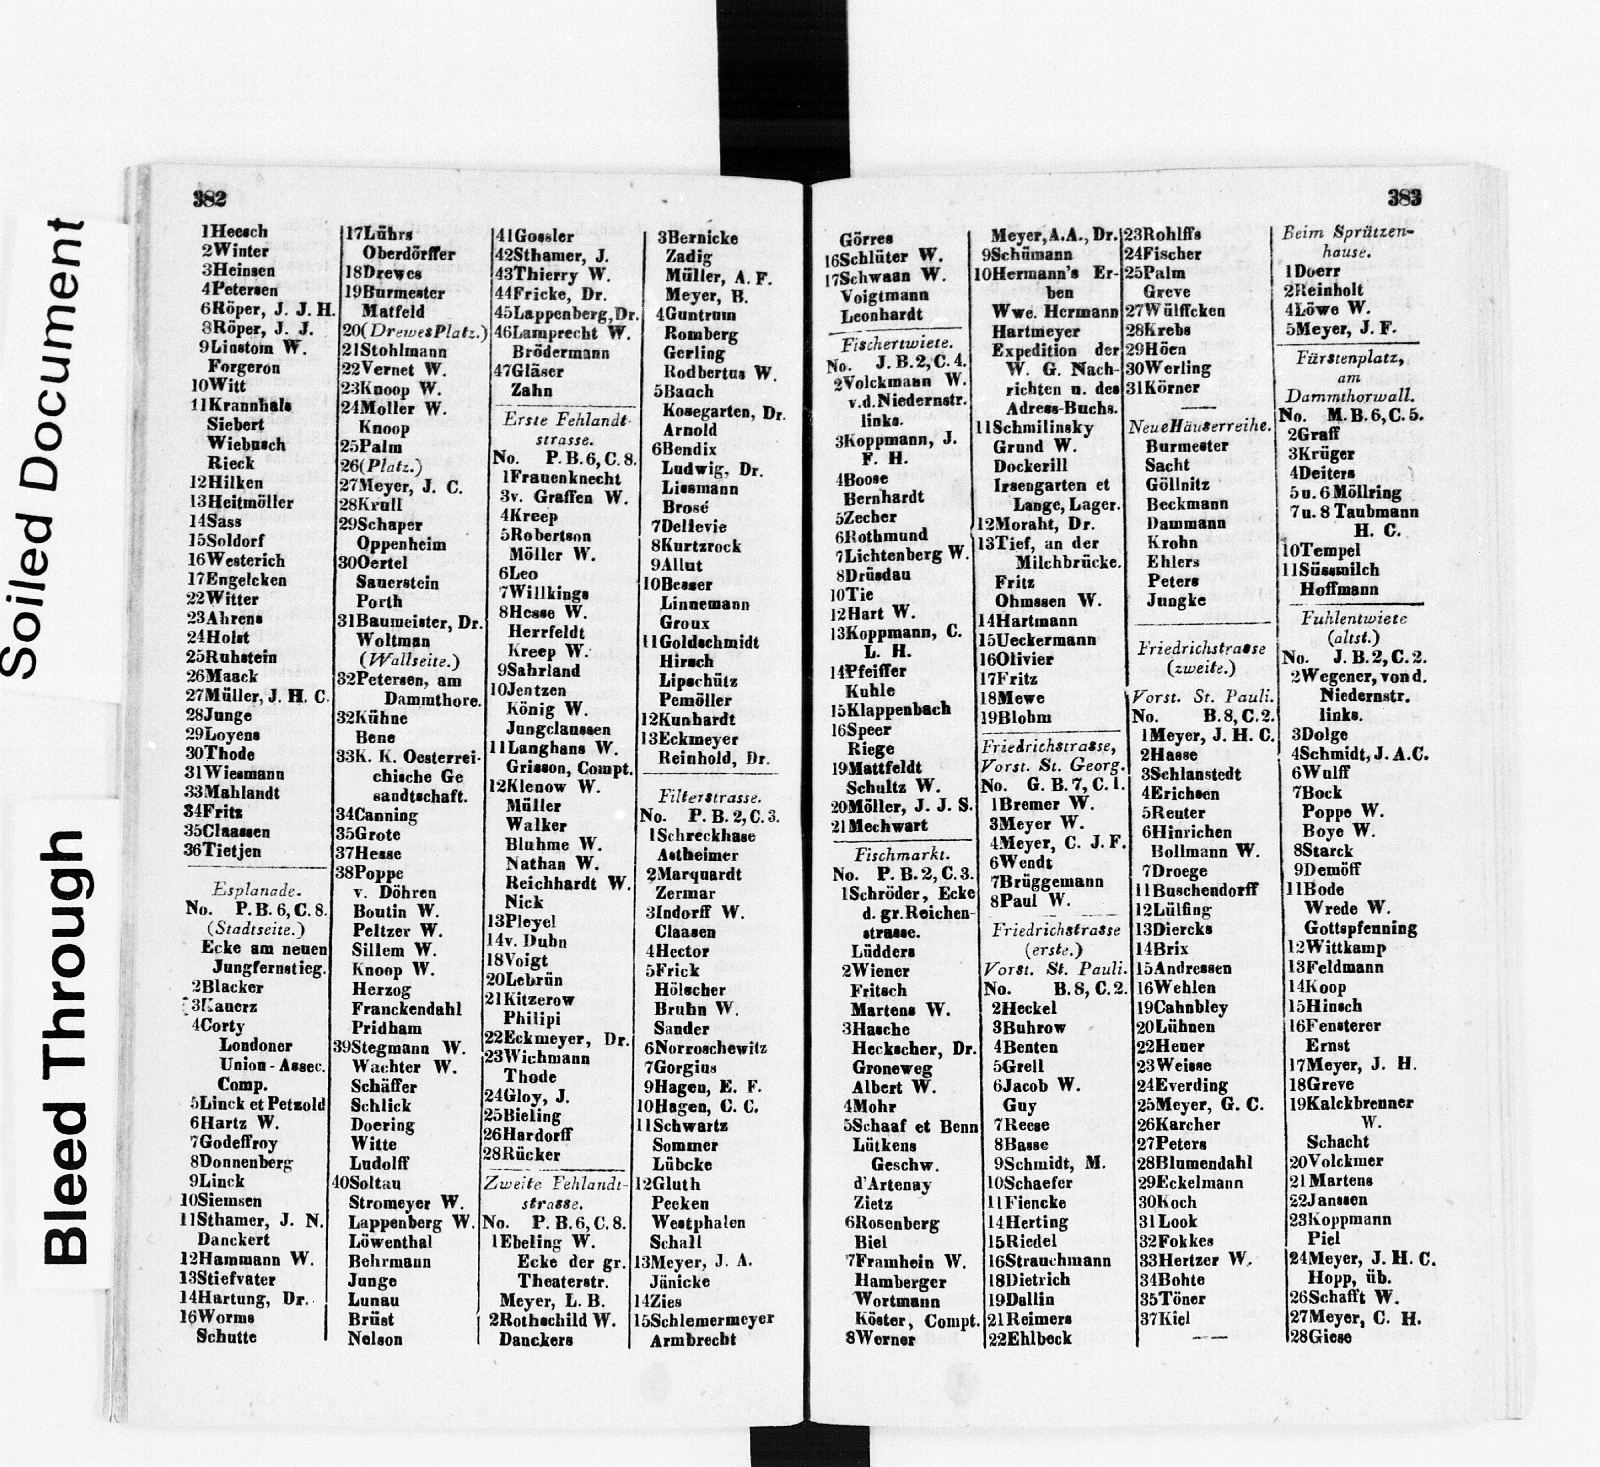 Soiled Document
Bleed Through
382
1Heesch
2Winter
3Heinsen
4Petersen
6Röper, J. J. H.
8Röper, J. J.
9Linstom W.
Forgeron
10Witt
11Krannhals
Siebert
Wiebusch
Rieck
12Hilken
13Heitmöller
14Sass
15Soldorf
16Westerich
17Engelcken
22Witter
23Ahrens
24Holst
25Ruhstein
26Maack
27Müller, J. H. C.
28Junge
29Loyens
30Thode
31Wiesmann
33Mahlandt
34Fritz
35Claassen
36Tietjen
Esplanade.
No. P. B. 6, C. 8.
(Stadtseite.)
Ecke am neuen
Jungfernstieg.
2Blacker
3Kauerz
4Corty
Londoner
Union-Assec.
Comp.
5Linck et Petzold
6Hartz W.
7Godeffroy
8Donnenberg
9Linck
10Siemsen
11Sthamer, J. N.
Danckert
12Hammann W.
13Stiefvater
14Hartung, Dr.
16Worms
Schutte
17Lührs
Oberdörffer
18Drewes
19Burmester
Matfeld
20(Drewes Platz.)
21Stohlmann
22Vernet W.
23Knoop W.
24Moller W.
Knoop
25Palm
26(Platz.)
27Meyer, J. C.
28Krull
29Schaper
Oppenheim
30Oertel
Sauerstein
Porth
31Baumeister, Dr.
Woltman
(Wallseite.)
32Petersen, am
Dammthore.
32Kühne
Bene
33K. K. Oesterrei-
chische Ge
sandtschaft.
34Canning
35Grote
37Hesse
38Poppe
v. Döhren
Boutin W.
Peltzer W.
Sillem W.
Knoop W.
Herzog
Franckendahl
Pridham
39Stegmann W.
Wachter W.
Schäffer
Schlick
Doering
Witte
Ludolff
40Soltau
Stromeyer W.
Lappenberg W.
Löwenthal
Behrmann
Junge
Lunau
Brüst
Nelson
41Gossler
42Sthamer, J.
43Thierry W.
44Fricke, Dr.
45Lappenberg, Dr.
46Lamprecht W.
Brödermann
47Gläser
Zahn
Erste Fehlandt-
strasse.
No. P. B. 6, C. 8.
1Frauenknecht
3v. Graffen W.
4Kreep
5Robertson
Möller W.
6Leo
7Willkings
8Hesse W.
Herrfeldt
Kreep W.
9Sahrland
10Jentzen
König W.
Jungclaussen
11Langhans W.
Grisson, Compt.
12Klenow W.
Müller
Walker
Bluhme W.
Nathan W.
Reichhardt W.
Nick
13Pleyel
14v. Duhn
18Voigt
20Lebrün
21Kitzerow
Philipi
22Eckmeyer, Dr.
23Wichmann
Thode
24Gloy, J.
25Bieling
26Hardorff
28Rücker
Zweite Fehlandt-
strasse.
No. P. B. 6, C. 8.
1Ebeling W.
Ecke der gr.
Theaterstr.
Meyer, L. B.
2Rothschild W.
Danckers
3Bernicke
Zadig
Müller, A. F.
Meyer, B.
4Guntrum
Romberg
Gerling
Rodbertus W.
5Baach
Kosegarten, Dr.
Arnold
6Bendix
Ludwig, Dr.
Liesmann
Brose
7Dellevie
8Kurtzrock
9Allut
10Besser
Linnemann
Groux
11Goldschmidt
Hirsch
Lipschütz
Pemöller
12Kunhardt
13Eckmeyer
Reinhold, Dr.
Filterstrasse.
No. P. B. 2, C. 3.
1Schreckhase
Astheimer
2Marquardt
Zermar
3Indorff W.
Claasen
4Hector
5Frick
Hölscher
Bruhn W.
Sander
6Norroschewitz
7Gorgius
9Hagen, E. F.
10Hagen, C. C.
11Schwartz
Sommer
Lübcke
12Gluth
Peeken
Westphalen
Schall
13Meyer, J. A.
Jänicke
14Zies
15Schlemermeyer
Armbrecht
383
Görres
16Schlüter W.
17Schwaan W.
Voigtmann
Leonhardt
Fischertwiete.
No. J. B. 2, C. 4.
2Volckmann W.
v. d. Niedernstr.
links.
3Koppmann, J.
F. H.
4Boose
Bernhardt
5Zecher
6Rothmund
7Lichtenberg W.
8Drüsdau
10Tie
12Hart W.
13Koppmann, C.
L. H.
14Pfeiffer
Kuhle
15Klappenbach
16Speer
Riege
19Mattfeldt
Schultz W.
20Möller, J. J. S.
21Mechwart
Fischmarkt.
No. P. B. 2, C. 3.
1Schröder, Ecke
d. gr. Reichen-
strasse.
Lüdders
2Wiener
Fritsch
Martens W.
3Hasche
Heckscher, Dr.
Groneweg
Albert W.
4Mohr
5Schaaf et Benn
Lütkens
Geschw.
d'Artenay
Zietz
6Rosenberg
Biel
7Framhein W.
Hamberger
Wortmann
Köster, Compt.
8Werner
Meyer, A. A., Dr.
9Schümann
10Hermann's Er-
ben
Wwe. Hermann
Hartmeyer
Expedition der
W. G. Nach-
richten u. des
Adress-Buchs.
11Schmilinsky
Grund W.
Dockerill
Irsengarten et
Lange, Lager.
12Moraht, Dr.
13Tief, an der
Milchbrücke.
Fritz
Ohmssen W.
14Hartmann
15Ueckermann
16Olivier
17Fritz
18Mewe
19Blohm
Friedrichstrasse,
Vorst. St. Georg.
No. G. B. 7, C. 1.
1Bremer W.
3Meyer W.
4Meyer, C. J. F.
6Wendt
7Brüggemann
8Paul W.
Friedrichstrasse
(erste.)
Vorst. St. Pauli.
No. B. 8, C. 2.
2Heckel
3Buhrow
4Benten
5Grell
6Jacob W.
Guy
7Reese
8Basse
9Schmidt, M.
10Schaefer
11Fiencke
14Herting
15Riedel
16Strauchmann
18Dietrich
19Dallin
21Reimers
22Ehlbeck
23Rohlffs
24Fischer
25Palm
Greve
27Wülffcken
28Krebs
29Höen
30Werling
31Körner
Neue Häuserreihe.
Burmester
Sacht
Göllnitz
Beckmann
Dammann
Krohn
Ehlers
Peters
Jungke
Friedrichstrasse
(zweite.)
Vorst. St. Pauli.
No. B. 8, C. 2.
1Meyer, J. H. C.
2Hasse
3Schlanstedt
4Erichsen
5Reuter
6Hinrichen
Bollmann W.
7Droege
11Buschendorff
12Lülfing
13Diercks
14Brix
15Andressen
16Wehlen
19Cahnbley
20Lühnen
22Heuer
23Weisse
24Everding
25Meyer, G. C.
26Karcher
27Peters
28Blumendahl
29Eckelmann
30Koch
31Look
32Fokkes
33Hertzer W.
34Bohte
35Töner
37Kiel
Beim Sprützen-
hause.
1Doerr
2Reinholt
4Löwe W.
5Meyer, J. F.
Fürstenplatz,
am
Dammthorwall.
No. M. B. 6, C. 5.
2Graff
3Krüger
4Deiters
5u. 6 Möllring
7u. 8 Taubmann
H. C.
10Tempel
11Süssmilch
Hoffmann
Fuhlentwiete
(altst.)
No. J. B. 2, C. 2.
2Wegener, von d.
Niedernstr.
links.
3Dolge
4Schmidt, J. A. C.
6Wulff
7Bock
Poppe W.
Boye W.
8Starck
9Demöff
11Bode
Wrede W.
Gottspfenning
12Wittkamp
13Feldmann
14Koop
15Hinsch
16Fensterer
Ernst
17Meyer, J. H.
18Greve
19Kalckbrenner
W.
Schacht
20Volckmer
21Martens
22Janssen
23Koppmann
Piel
24Meyer, J. H. C.
Hopp, üb.
26Schafft W.
27Meyer, C. H.
28Giese